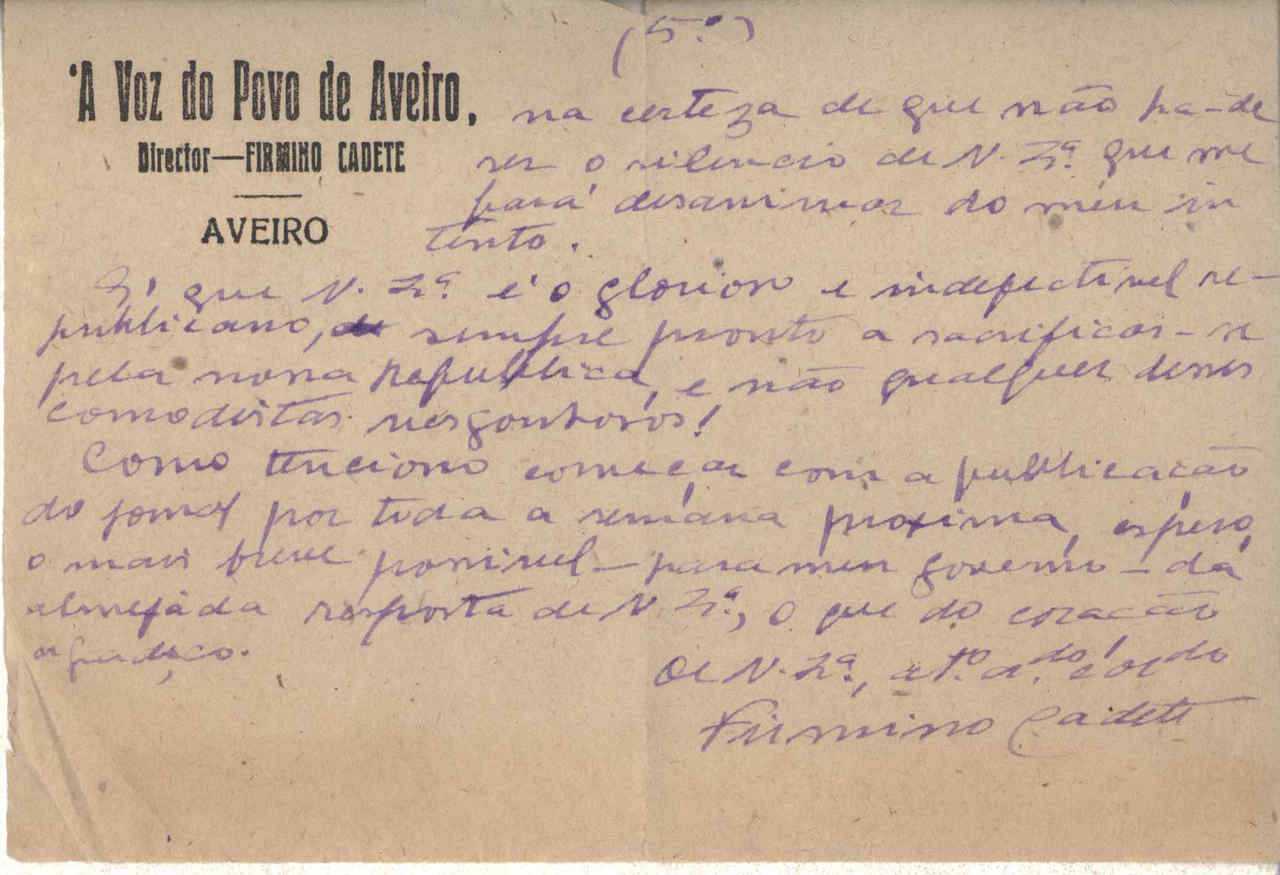 (5.º)
'A Voz do Povo de Aveiro,
Director—FIRMINO CADETE
AVEIRO
na certeza de que não ha-de
ser o silencio de V. Ex.ª que me
fará desanimar do meu in
tento.
É que V. Ex.ª é o glorioso e indefectivel re-
publicano, sempre pronto a sacrificar-se
pela nossa Republica, e não qualquer desses
comodistas vergonhosos!
Como tenciono começar com a publicação
do jornal por toda a semana proxima, espero,
o mais breve possivel—para meu governo—da
almejáda resposta de V. Ex.ª, o que do coração
agradeço.
De V. Ex.ª, at.º a.do
Firmino Cadete